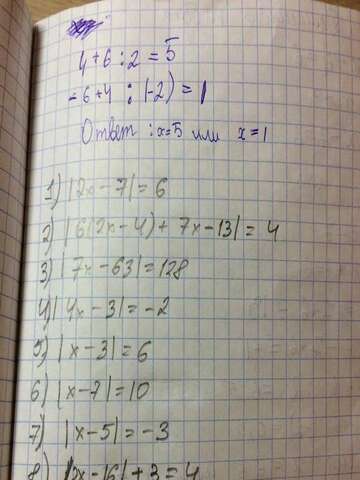 4+6:2=5
-6+4:(-2)=1
Ответ: x=5 или x=1
1) |2x-7|=6
2) |6(2x-4)+7x-13|=4
3) |7x-63|=128
4) |4x-3|=-2
5) |x-3|=6
6) |x-7|=10
7) |x-5|=-3
8) |2x-16|+3=4